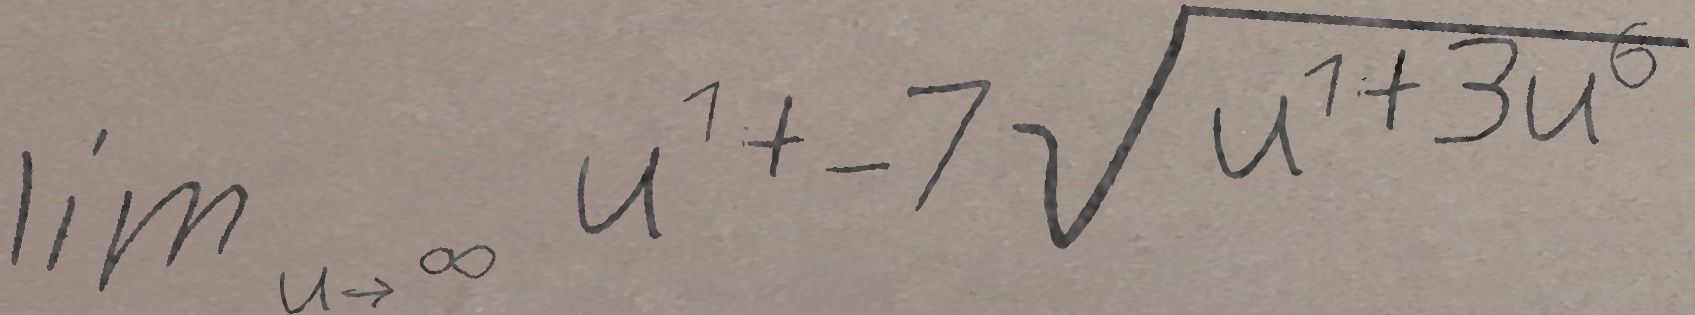 \lim_{u \to \infty} u^1 + -7 \sqrt{u^1 + 3u^6}